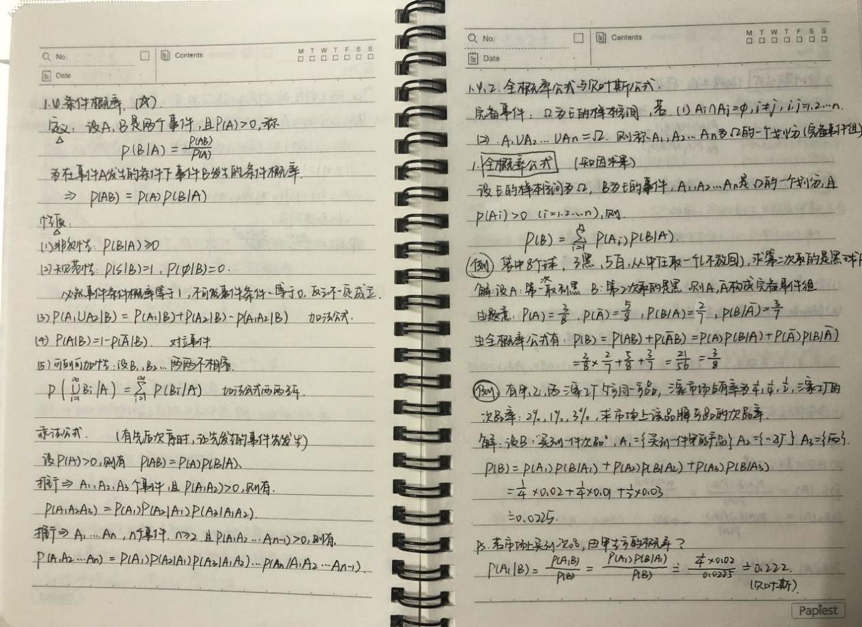 No.
Contents
M T W T F S S
Date
1.4 条件概率. (A)
定义: 设A, B是两个事件, 且P(A)>0, 称
P(B|A) = P(AB)/P(A)
为在事件A发生的条件下事件B发生的条件概率.
⇒ P(AB) = P(A)P(B|A)
性质:
(1) 非负性: P(B|A)≥0
(2) P(S|B)=1, P(φ|B)=0.
必然事件条件概率等于1, 不可能事件条件一等于0, 反之不一定成立.
(3) P(A₁UA₂|B) = P(A₁|B)+P(A₂|B)-P(A₁A₂|B) 加法公式.
(4) P(A|B)=1-P(Ā|B). 对立事件
(5) 可列可加性: 设B₁, B₂... 两两不相容.
P(∪(i=1..∞) Bi|A) = Σ(i=1..∞) P(Bi|A) 加法公式
乘法公式. (有先后次序时, 让先发生的事件先发生)
设P(A)>0, 则有 P(AB)=P(A)P(B|A).
推广⇒ A₁, A₂, A₃ 三个事件, 且 P(A₁A₂)>0, 则有.
P(A₁A₂A₃) = P(A₁)P(A₂|A₁)P(A₃|A₁A₂)
推广⇒ A₁...An, n个事件. n≥2 且P(A₁A₂...An-1)>0, 则有.
P(A₁A₂...An) = P(A₁)P(A₂|A₁)P(A₃|A₁A₂)...P(An|A₁A₂...An-1).
No.
Contents
M T W T F S S
Date
1.4.2. 全概率公式与贝叶斯公式.
完备事件. Ω为E的样本空间, 若 (1) Ai∩Aj=φ, i≠j, i,j=1,2...n.
(2) A₁UA₂...UAn=Ω. 则称A₁,A₂...An为Ω的一个划分(完备事件组)
1. 全概率公式 (知因求果)
设E的样本空间为Ω, B为E的事件, A₁, A₂...An是Ω的一个划分, 且
P(Ai)>0 (i=1,2...n), 则
P(B) = Σ(i=1..n) P(Ai)P(B|Ai).
例 8个球, 3黑, 5白, 从中任取一个(不放回), 求第二次取的是黑球
解: 设A: 第一次取到黑 B: 第2次取的是黑 则A, Ā构成完备事件组
由题意: P(A)=3/8, P(Ā)=5/8, P(B|A)=2/7, P(B|Ā)=3/7
由全概率公式有. P(B)=P(AB)+P(ĀB)=P(A)P(B|A)+P(Ā)P(B|Ā)
=3/8×2/7+5/8×3/7=21/56=3/8
例 有甲, 乙, 丙三家工厂生产同一产品, 三家市场占有率为1/4, 1/4, 1/2, 三家工厂的
次品率: 2%, 1%, 3%, 求市场上该品牌产品的次品率.
解: 设B: "买到一件次品", A₁={买到一件甲厂产品} A₂={-乙厂} A₃={丙}.
P(B)=P(A₁)P(B|A₁)+P(A₂)P(B|A₂)+P(A₃)P(B|A₃)
=1/4×0.02+1/4×0.01+1/2×0.03
=0.0225.
若市场上买到次品, 由甲生产的概率?
P(A₁|B)=P(A₁B)/P(B)=P(A₁)P(B|A₁)/P(B)=1/4×0.02/0.0225≐0.222.
(贝叶斯)
Papiest